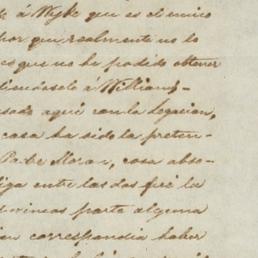 á Wyke que es el unico
hor que realmente no lo
es que no ha podido obtener
tiendoselo á William,-
sado aquí con la Legacion,
casa ha sido la preten-
Pa. de Moran, cosa abso-
liga entre las dos fué la
vincias parte alguna
correspondia haber